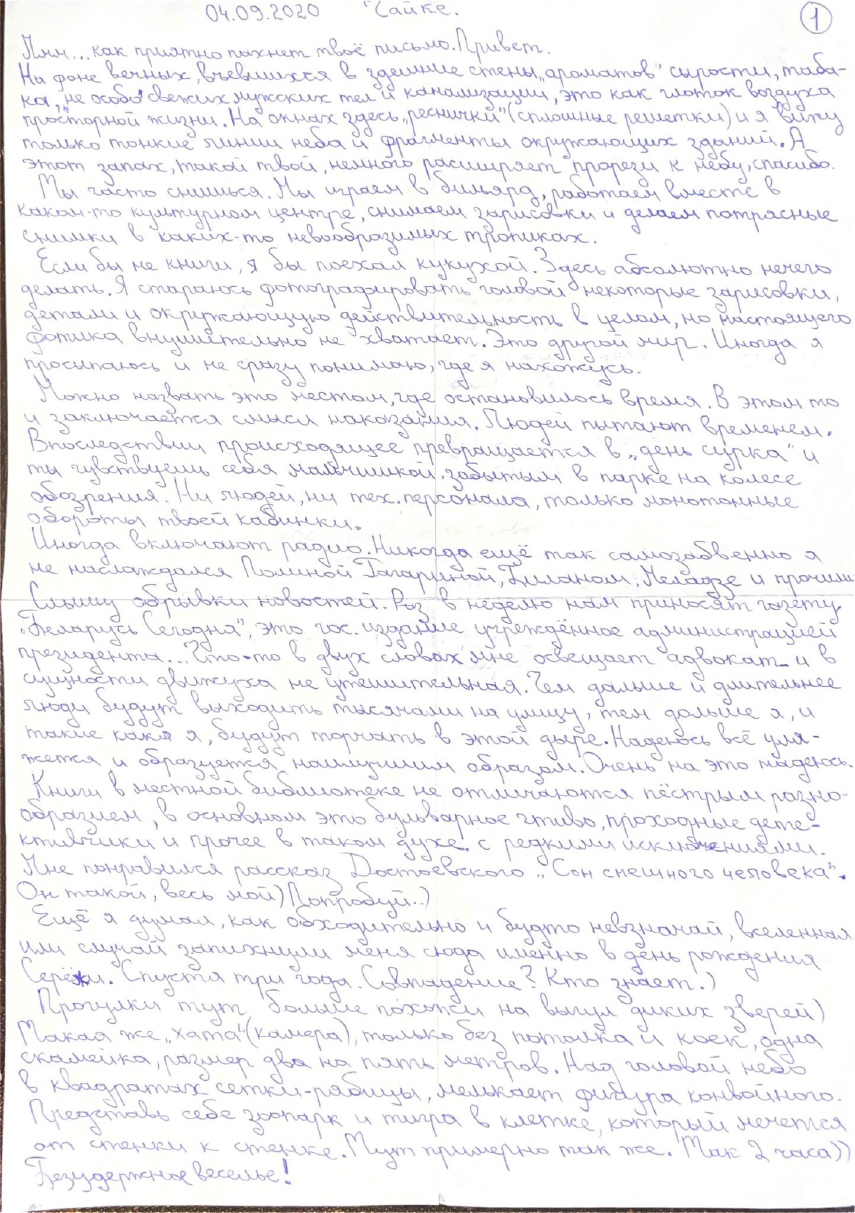 04.09.2020 Чайке. 1
Ммм... как приятно пахнет твоё письмо. Привет.
На фоне вечных, въевшихся в здешние стены „ароматов“ сырости, таба-
ка, не особо свежих мужских тел и канализации, это как глоток воздуха
просторной жизни. На окнах здесь „реснички“ (сплошные решетки) и я вижу
только тонкие линии неба и фрагменты окружающих зданий. А
этот запах, такой твой, немного расширяет прорези к небу, спасибо.
Мы часто снишься. Мы играем в бильярд, работаем вместе в
каком-то культурном центре, снимаем зарисовки и делаем потрясные
снимки в каких-то невообразимых тропиках.
Если бы не книги, я бы поехал кукухой. Здесь абсолютно нечего
делать. Я стараюсь фотографировать головой некоторые зарисовки,
детали и окружающую действительность в целом, но настоящего
фотика внушительно не хватает. Это другой мир. Иногда я
просыпаюсь и не сразу понимаю, где я нахожусь.
Можно назвать это местом, где остановилось время. В этом то
и заключается смысл наказания. Людей пытают временем.
Впоследствии происходящее превращается в „день сурка“ и
ты чувствуешь себя мальчишкой, забытым в парке на колесе
обозрения. Ни людей, ни тех. персонала, только монотонные
обороты твоей кабинки.
Иногда включают радио. Никогда ещё так самозабвенно я
не наслаждался Полиной Гагариной, Биланом, Меладзе и прочими
Слышу обрывки новостей. Раз в неделю нам приносят газету
„Беларусь Сегодня“, это гос. издание учреждённое администрацией
президента... Что-то в двух словах мне освещает адвокат и в
сущности движуха не утешительная. Чем дальше и длительнее
люди будут выходить тысячами на улицу, тем дольше я, и
такие как я, будут торчать в этой дыре. Надеюсь всё уля-
жется и образуется наилучшим образом. Очень на это надеюсь.
Книги в местной библиотеке не отличаются пёстрым разно-
образием, в основном это бульварное чтиво, проходные дете-
ктивчики и прочее в таком духе с редкими исключениями.
Мне понравился рассказ Достоевского „Сон смешного человека“.
Он такой, весь мой) Попробуй..)
Ещё я думал, как обходительно и будто невзначай, вселенная
или случай запихнули меня сюда именно в день рождения
Серёжи. Спустя три года. Совпадение? Кто знает.)
Прогулки тут больше похожи на выгул диких зверей)
Такая же „хата“ (камера), только без потолка и коек, одна
скамейка, размер два на пять метров. Над головой небо
в квадратах сетки-рабицы, мелькает фигура конвойного.
Представь себе зоопарк и тигра в клетке, который мечется
от стенки к стенке. Тут примерно так же. Так 2 часа))
Безудержное веселье!